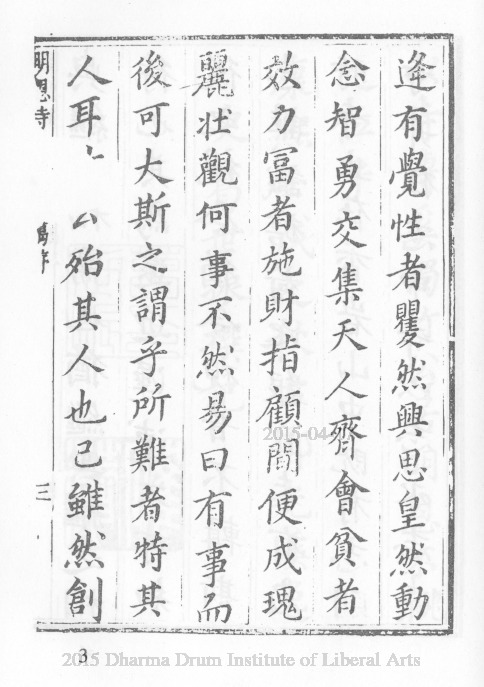 逢有覺性者瞿然興思皇然動
念智勇交集天人齊會貧者
效力冨者施財指顧間便成瑰
麗壯觀何事不然易曰有事而
後可大斯之謂乎所難者特其
人耳 殆其人也已雖然創
明恩寺
三
3
2015-04
2015 Dharma Drum Institute of Liberal Arts